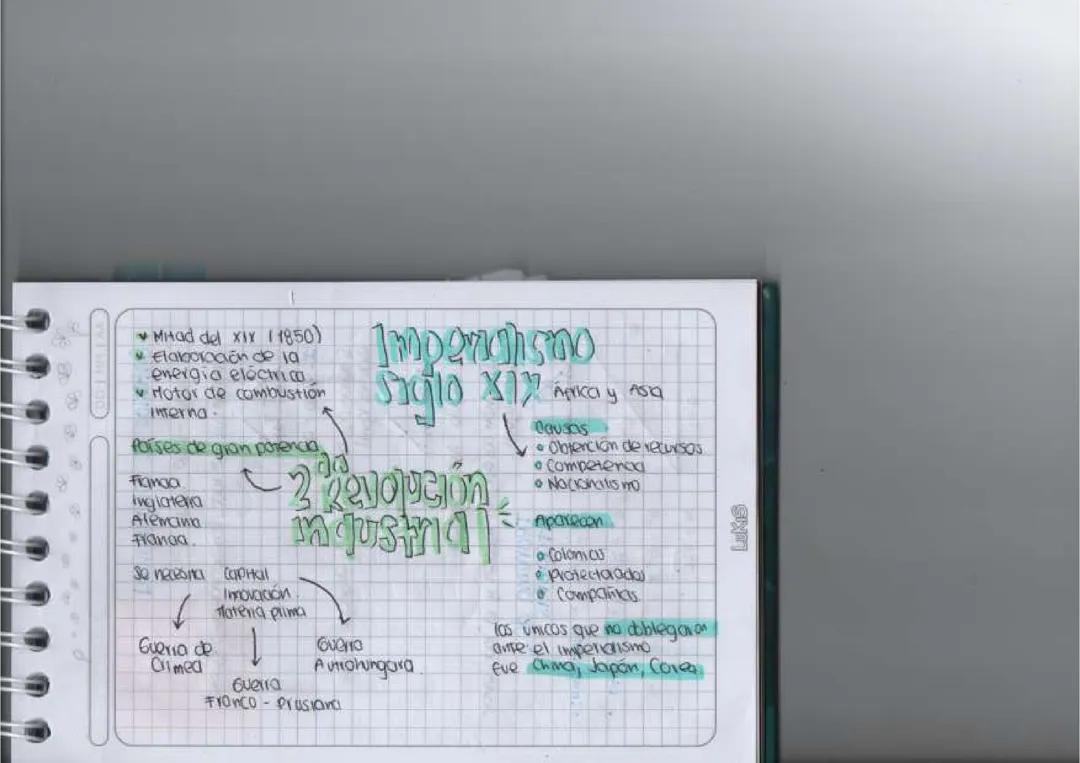 Mitad del XIX (1850)
Elaboración de la
energia eléctrica
Motor de combustión
interna.
Imperialismo
siglo XIX África y Asia
Causas
Obtención de recursos
Competencia
Nacionalismo
Países de gran potencia
2da Revolución
industrial
Francia
Inglaterra
Alemania
Francia.
Aparecen
Colonias
Protectorados
Compañías
Se necesita Capital
Innovación
Materia prima
Guerra de
Crimea
Guerra
Franco - Prusiana
Guerra
Austrohungara.
los únicos que no doblegaron
ante el imperialismo
fue China, Japón, Corea.
LUXIS